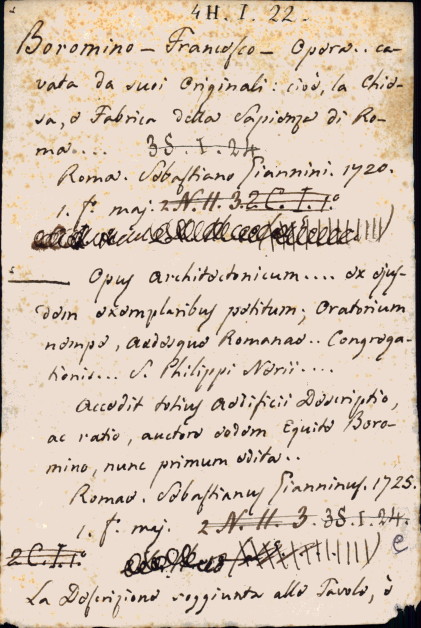 4H. I. 22.
Boromino - Francesco - Opera.. ca-
vata da suoi Originali: cioè, la Chie-
sa, e Fabrica della Sapienza di Ro-
ma.... 35. I. 24
Roma. Sebastiano Giannini. 1720.
1. f. maj. 2 N. H. 3. 2 C. I. 1.
Opus Architectonicum.... ex ejus-
dem exemplaribus petitum; Oratorium
nempe, Aedesque Romanae.. Congrega-
tionis... S. Philippi Nerii....
Accedit totius Aedificii Descriptio,
ac ratio, auctore eodem Equite Boro-
mino, nunc primum edita..
Romae. Sebastianus Gianninus. 1725.
1. f. maj. 2 N. H. 3. 35. I. 24.
2 C. I. 1.
La Descrizione soggiunta alle Tavole, è